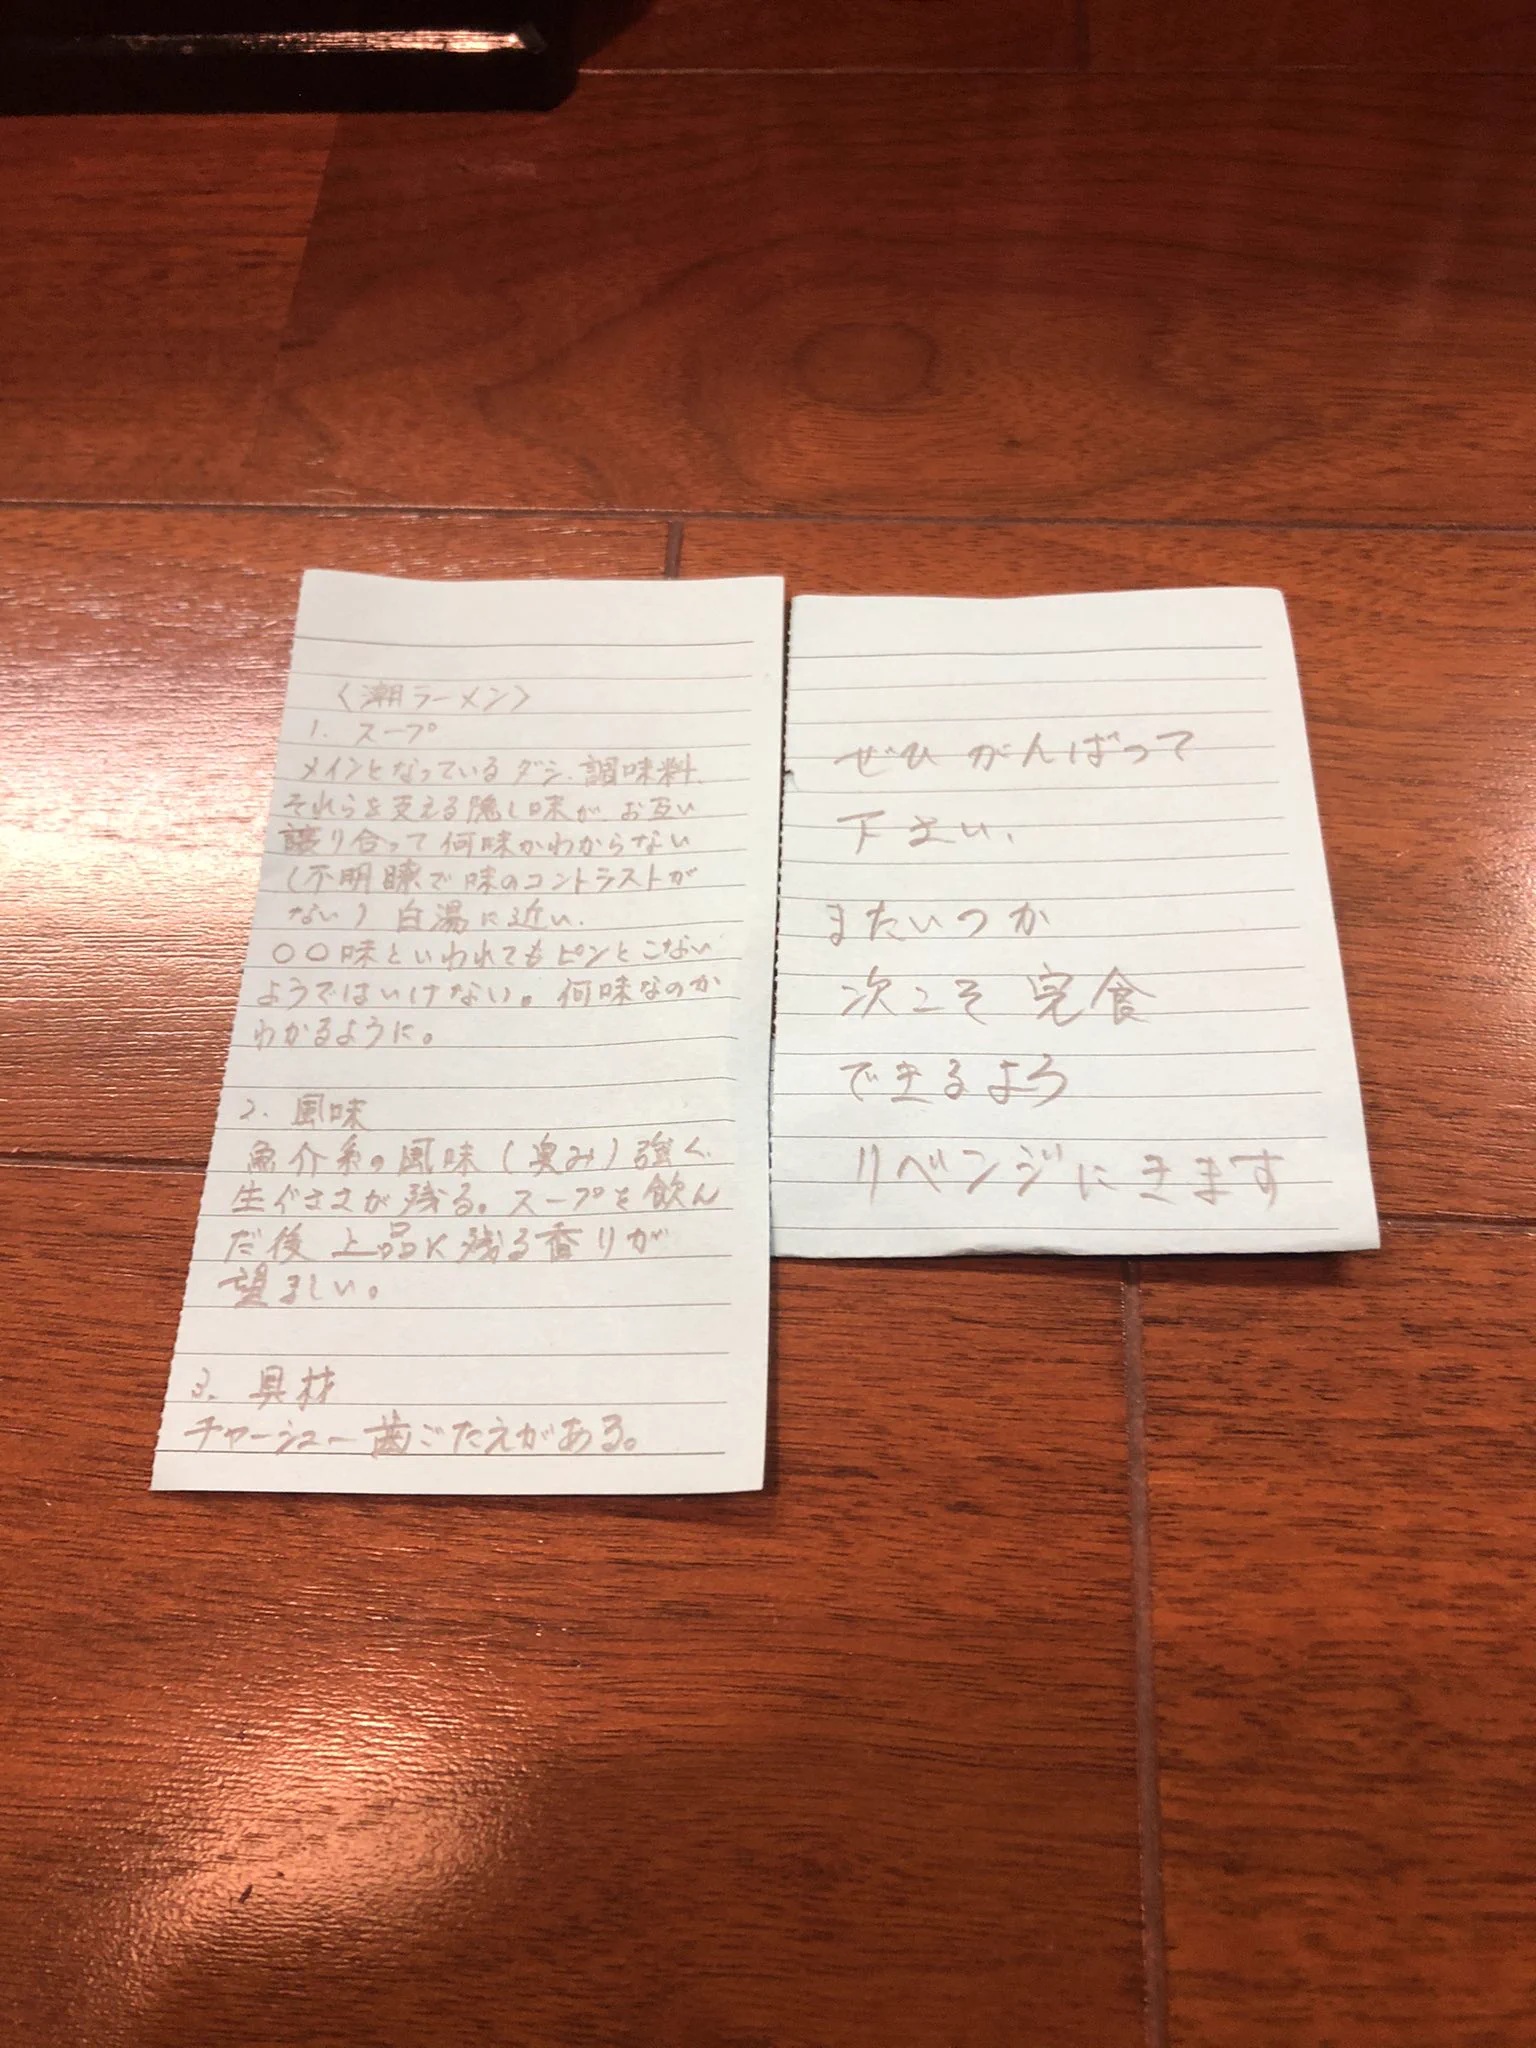 〈潮ラーメン〉
1. スープ
メインとなっているダシ、調味料、
それらを支える隠し味が、お互い
譲り合って何味かわからない
(不明瞭で味のコントラストが
ない) 白湯に近い.
〇〇味といわれてもピンとこない
ようではいけない。何味なのか
わかるように。
2. 風味
魚介系の風味(臭み)強く、
生ぐささが残る。スープを飲ん
だ後上品に残る香りが
望ましい。
3. 具材
チャーシュー歯ごたえがある。
ぜひがんばって
下さい、
またいつか
次こそ完食
できるよう
リベンジにきます